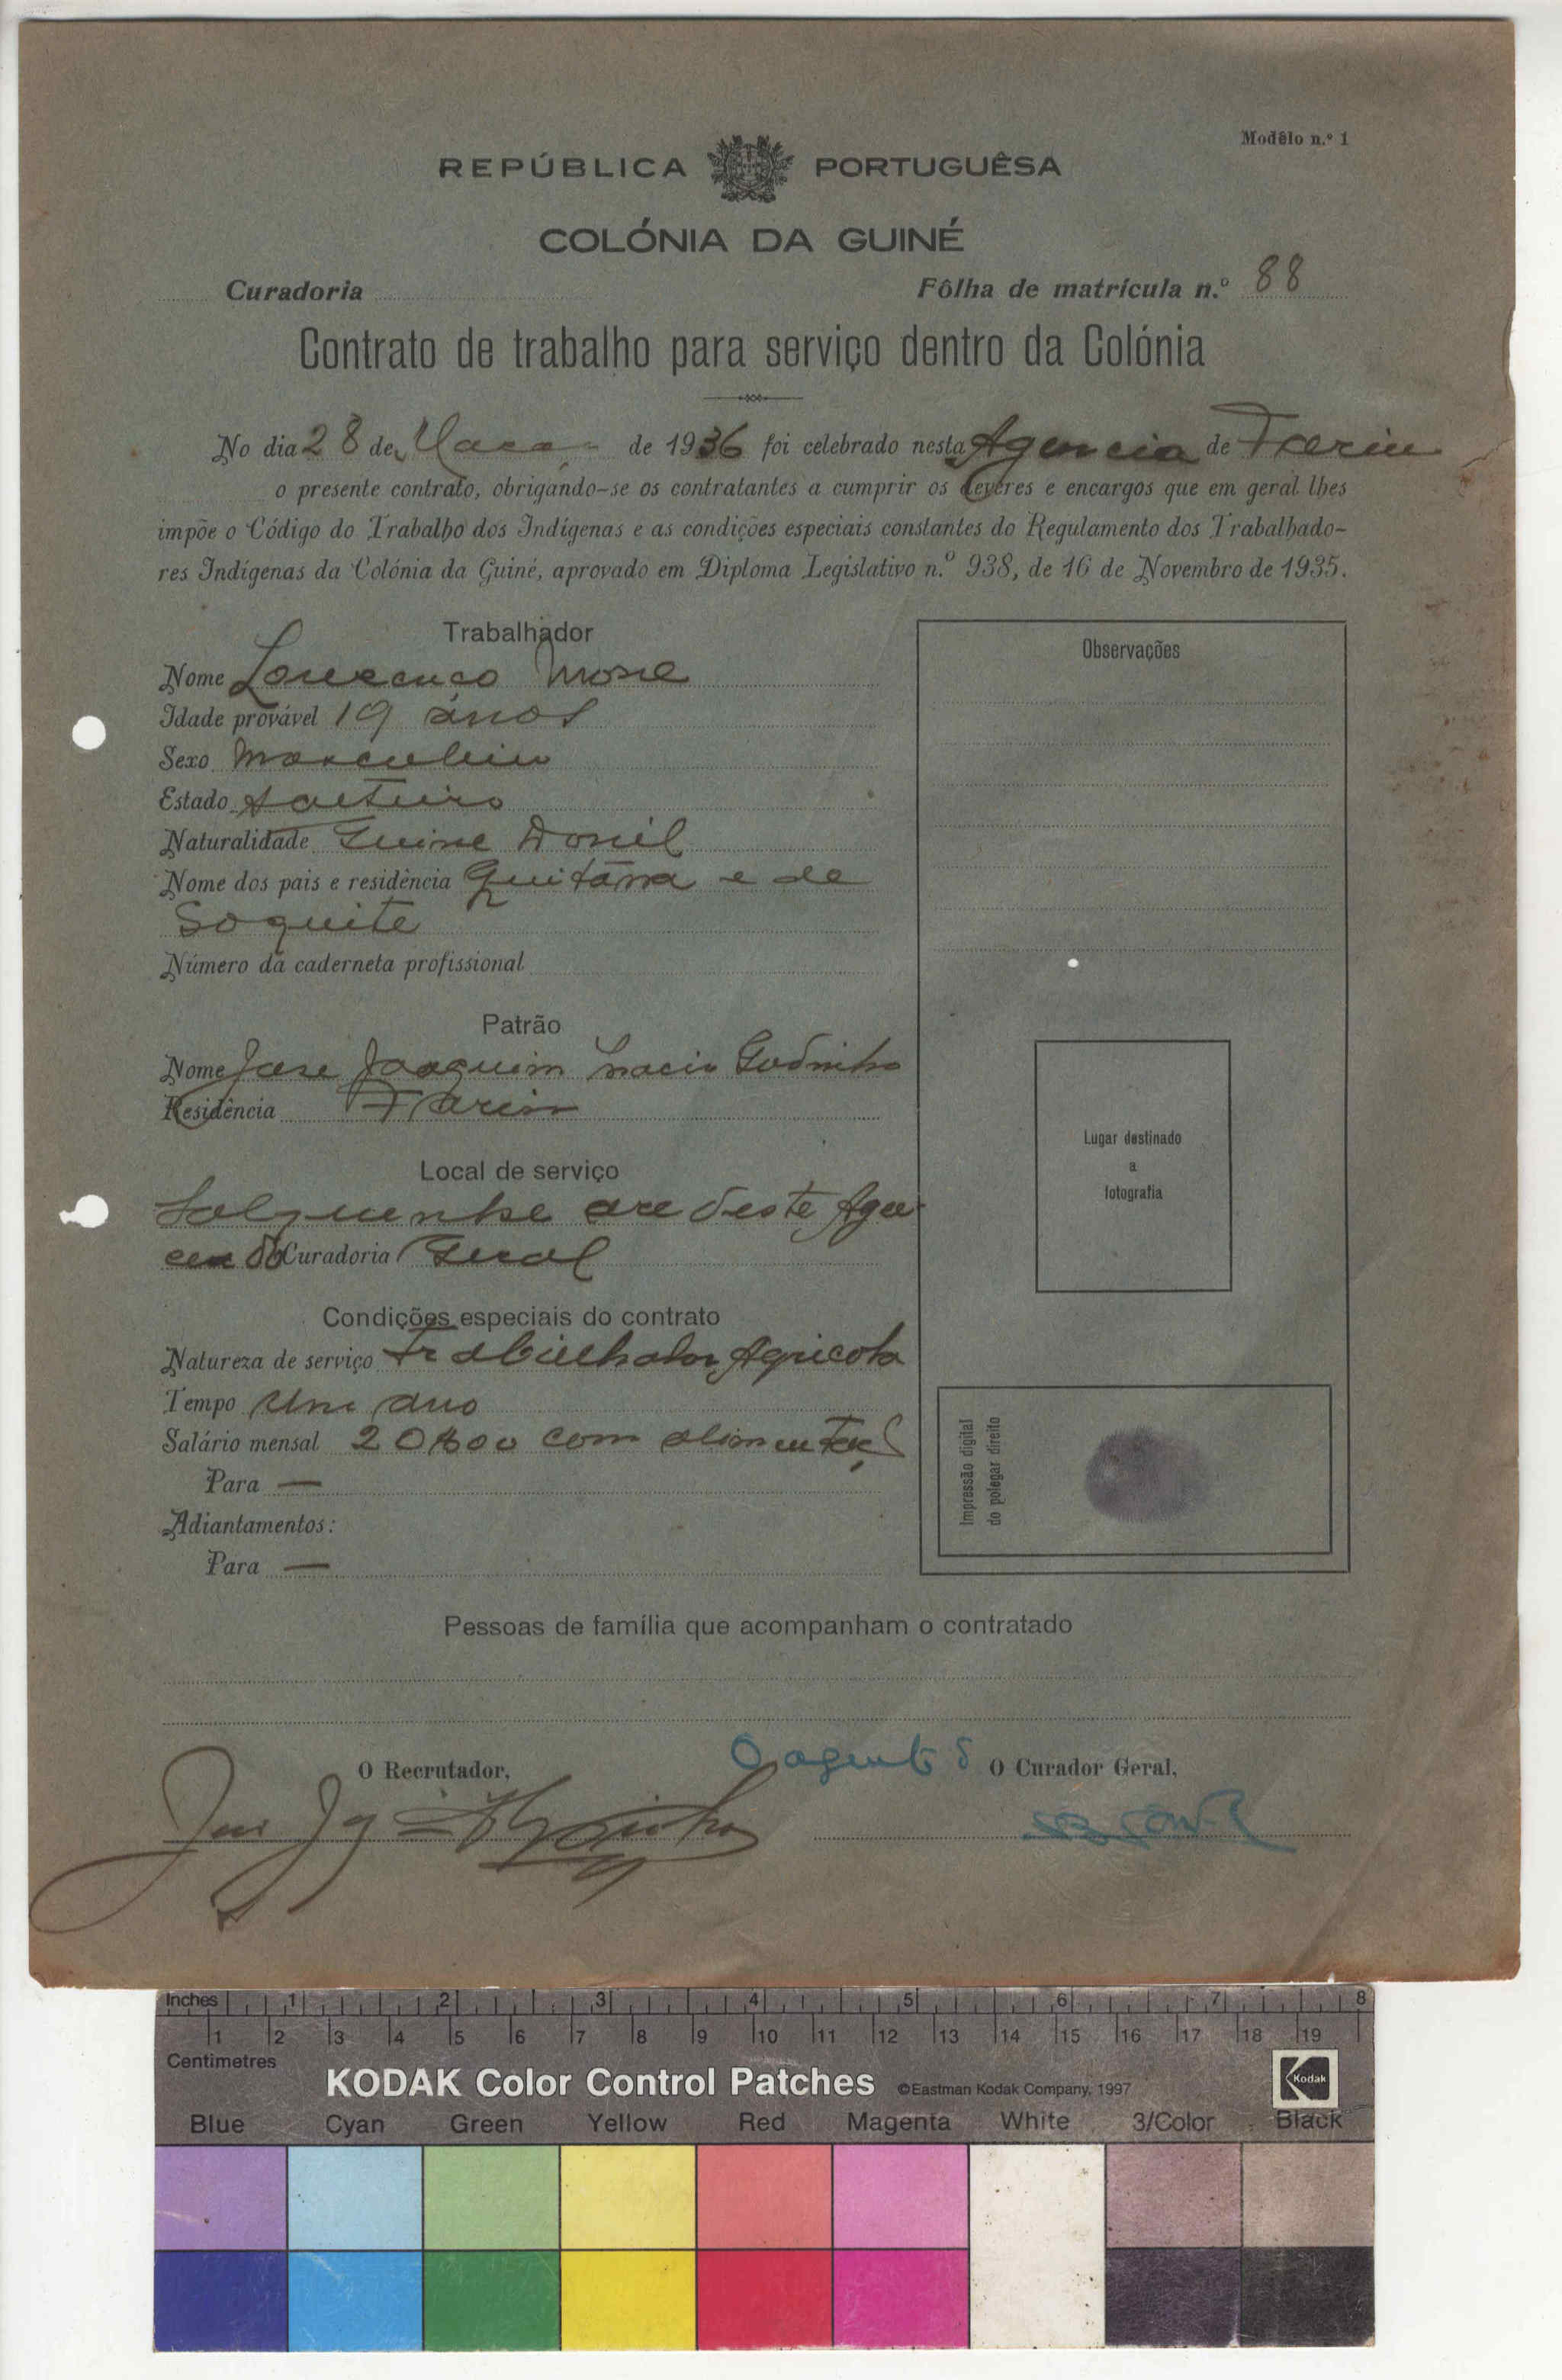 Modêlo n.º 1
REPÚBLICA PORTUGUÊSA
COLÓNIA DA GUINÉ
Curadoria Fôlha de matrícula n.º 88
Contrato de trabalho para serviço dentro da Colónia
No dia 28 de de 1936 foi celebrado nesta Agencia de Farim
o presente contrato, obrigando-se os contratantes a cumprir os deveres e encargos que em geral lhes
impõe o Código do Trabalho dos Indígenas e as condições especiais constantes do Regulamento dos Trabalhado-
res Indígenas da Colónia da Guiné, aprovado em Diploma Legislativo n.º 938, de 16 de Novembro de 1935.
Trabalhador
Nome Lourenco
Idade provável 19 anos
Sexo Masculino
Estado Solteiro
Naturalidade Guine
Nome dos pais e residência e de
Soquite
Número da caderneta profissional
Patrão
Nome Jose Joaquim Godinho
Residência Farim
Local de serviço
deste Agen
cia do Curadoria Geral
Condições especiais do contrato
Natureza de serviço Trabalhador Agricola
Tempo Um ano
Salário mensal 20$00 com
Para —
Adiantamentos:
Para —
Observações
Lugar destinado
a
fotografia
Impressão digital
do polegar direito
Pessoas de família que acompanham o contratado
O Recrutador, O agente d O Curador Geral,
Inches 1 2 3 4 5 6 7 8
1 2 3 4 5 6 7 8 9 10 11 12 13 14 15 16 17 18 19
Centimetres
KODAK Color Control Patches ©Eastman Kodak Company, 1997 Kodak
Blue Cyan Green Yellow Red Magenta White 3/Color Black